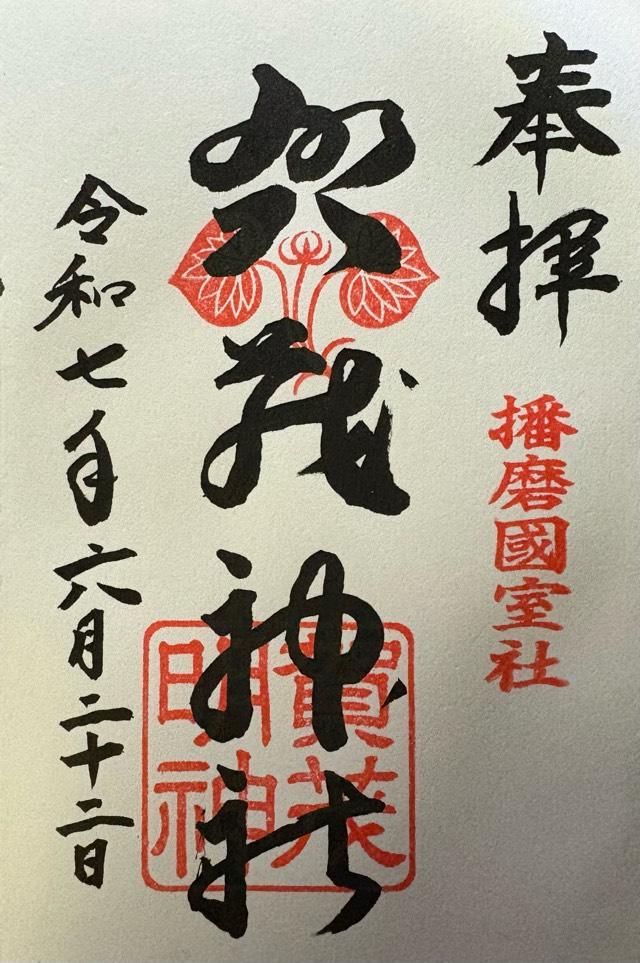 奉拝
播磨國室社
賀茂神社
賀茂
明神
令和七年六月二十二日